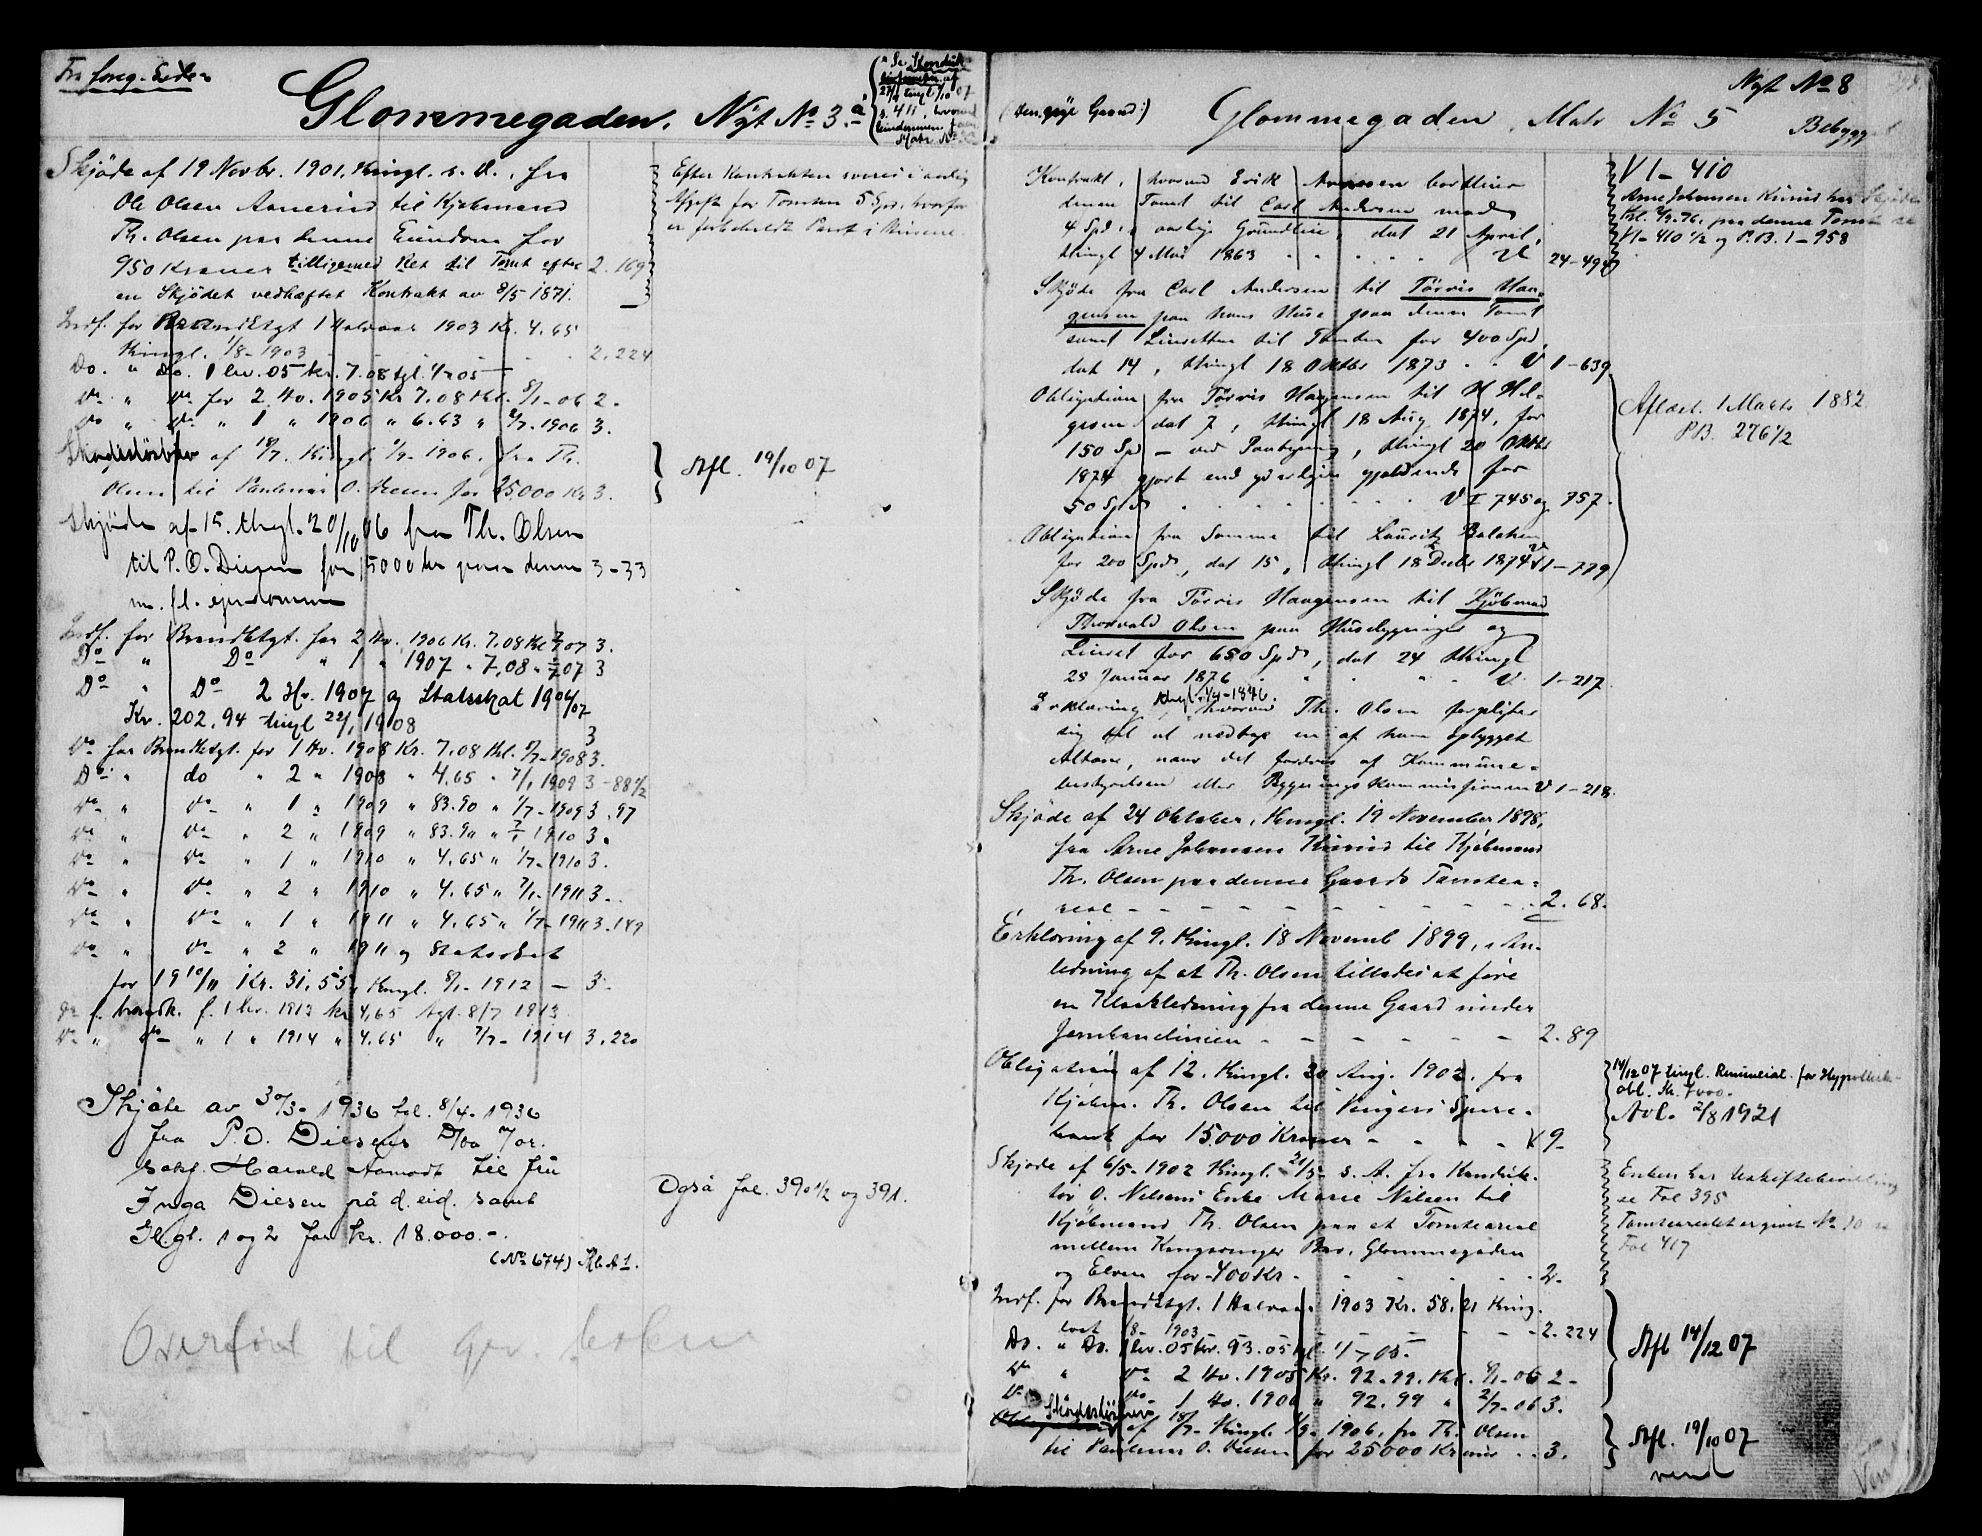 Fra foreg. Side
Glommegaden. Nyt No 3.a
Se Skondsk-
27/9 tingl 1/10 07
s. 411, hvorved
Eiendommen
Skjøde af 19 Novbr. 1901, thingl. s. D., fra
Ole Olsen Aanerud til Kjøbmand
Th. Olsen paa denne Eiendom for
950 Kroner tilligemed Ret til Tomt efter 2. 169
en Skjødet vedhæftet Kontrakt av 8/5 1871.
Efter Kontrakten svares i aarlig
Afgift for Tomten 5 Spd. hvorfor
er forbeholdt Pant i Husene.
Indf. for Brandktgt 1 Halvaar 1903 Kr. 4.65
thingl. 1/8-1903 2.224
Do. " Do. 1 hv. 05 kr. 7.08 tgl. 1/7 05
Do " Do for 2 Hv. 1905 Kr 7.08 thl. 8/1-06 2.
Do " Do " 1 " 1906 " 6.63 " 2/7 1906 3.
Skadesløsbrev af 18/7. thingl. 1/9-1906, fra Th.
Olsen til Paulinus O. Diesen for 25000 Kr 3.
Afl. 19/10 07
Skjøde af 15. thgl. 20/10 06 fra Th. Olsen
til P. O. Diesen for 15000 kr paa denne 3-33
m. fl. ejendomme
Indf. for Brandktgt. for 2 Hv. 1906 Kr. 7.08 thl 2/1 07 3.
Do " Do " 1 " 1907 " 7.08 " 2/7 07 3
Do " Do 2 Hv. 1907 og Statsskat 1906/07
Kr. 202.94 tingl 22/1 1908 3
Do for Brandktgt. for 1 Hv. 1908 Kr. 7.08 thl. 8/7-1908 3.
Do " do " 2 " 1908 " 4.65 " 7/1 1909 3-88 1/2
Do " Do " 1 " 1909 " 83.90 " 1/7-1909 3.97
Do " Do " 2 " 1909 " 83.90 " 7/1 1910 3.
Do " Do " 1 " 1910 " 4.65 " 1/7-1910 3.
Do " Do " 2 " 1910 " 4.65 " 7/1-1911 3.
Do " Do " 1 " 1911 " 4.65 " 1/7-1911 3.149
Do " Do " 2 " 1911 og Statsskat
for 1910/11 Kr. 31.55, thingl. 8/1-1912 - 3.
Do f. brandk. f. 1 hv. 1913 kr 4,65 tgl. 8/7 1913
Do " Do " 1 " 1914 " 4.65 " 7/7-1914 3.220
Skjøte av 30/3-1936 tgl. 8/4-1936
fra P. O. Diesens Dbo v/or.
sakf. Harald Aamodt til fru
Inga Diesen på d. eid. samt
Jl.gl. 1 og 2 for kr. 18.000.-.
(No 674) Rb. A 1.
Også fol. 390 1/2 og 391.
Overført til grv. boken
Nyt No 8
(den øvre Gaard:) Glommegaden, Matr No 5
Bebygget
Kontrakt, hvorved Erik Arnesen bortleier
denne Tomt til Carl Andersen mod
4 Spd. i aarlig Grundleie, dat 21 April,
thingl 4 Mai 1863 . . . . . . 24-494
VI-410
Arne Johansen Kurud har Skjøde
thl. 4/9-76. paa denne Tomt se
VI-410 1/2 og P.B. 1-958
Skjøde fra Carl Andersen til Tørris Haa-
gensen paa hans Huse paa denne Tomt
samt Leieretten til Tomten for 400 Spd,
dat 14, thingl 18 Oktbr 1873 . . V 1-639
Obligation fra Tørris Haagensen til H Hel-
gesen dat 7, thingl 18 Aug 1874, for
150 Spd - ved Paategning, thingl 20 Oktbr
1874 gjort end yderligere gjældende for
50 Spd . . . . . . V I 745 og 757.
Aflæst. 1 Marts 1882
P.B. 276 1/2
Obligation fra Samme til Lauritz Balchen
for 200 Spd, dat 15, thingl 18 Decbr 1874 V 1-779
Skjøde fra Tørris Haagensen til Kjøbmand
Thorvald Olsen paa Husebygninger og
Leieret for 650 Spd, dat 24 thingl
28 Januar 1876 . . . . V 1-217.
thgl. 1/4-1876.
Erklæring, hvorved Th. Olsen forpligter
sig til at nedtage en af ham opbygget
Altane, naar det fordres af Kommune-
bestyrelsen eller Bygningskommissionen V 1-218.
Skjøde af 24 Oktober, thingl. 19 November 1898,
fra Arne Johansen Kurud til Kjøbmand
Th. Olsen paa denne Gaards Tomtea-
real - - - - - - - - - 2. 68.
Erklæring af 9. thingl. 18 Novemb 1899, i An-
ledning af at Th. Olsen tillades at føre
en Kloakledning fra denne Gaard under
Jernbanelinien - - - - - - 2. 89
Obligation af 12. thingl. 20 Aug. 1902, fra
Kjøbm. Th. Olsen til Vingers Spare-
bank for 15.000 Kroner - - - - 9-
14/12 07 tingl. Renunciat. for Hypothek-
obl. Kr. 7000.-
Avl. 2/8 1921
Skjøde af 6/5-1902 thingl. 21/5 s. A. fra Konduk-
tør O. Nilsens Enke Marie Nilsen til
Kjøbmand Th. Olsen paa et Tomteareal
mellem Kongsvinger Bro, Glommegaden
og Elven for 400 Kr. . . . . 2.
Enken har Uskiftebevilling
se Fol 395
Tomtearealet er givet No 10 se
Fol 417
Indf. for Brandktgt. 1 Halvaar 1903 Kr. 58.21 thing-
lest 1/8-1903 - - - - 2. 224
Do. " Do. 1 hv. 05 kr. 93.05 tgl. 1/7 05.
Do " Do 2 Hv. 1905 Kr. 92.99. thl. 8/1-06 2-
Do Do 1 Hv. 1906 " 92.99 " 2/7-06 3.
Afl 14/12 07
Skadesløsbrev
af 18/7. thingl. 1/9-1906, fra Th. Olsen
til Paulinus O. Diesen for 25000 Kroner . . 3.
Afl. 19/10 07
vend
Vend